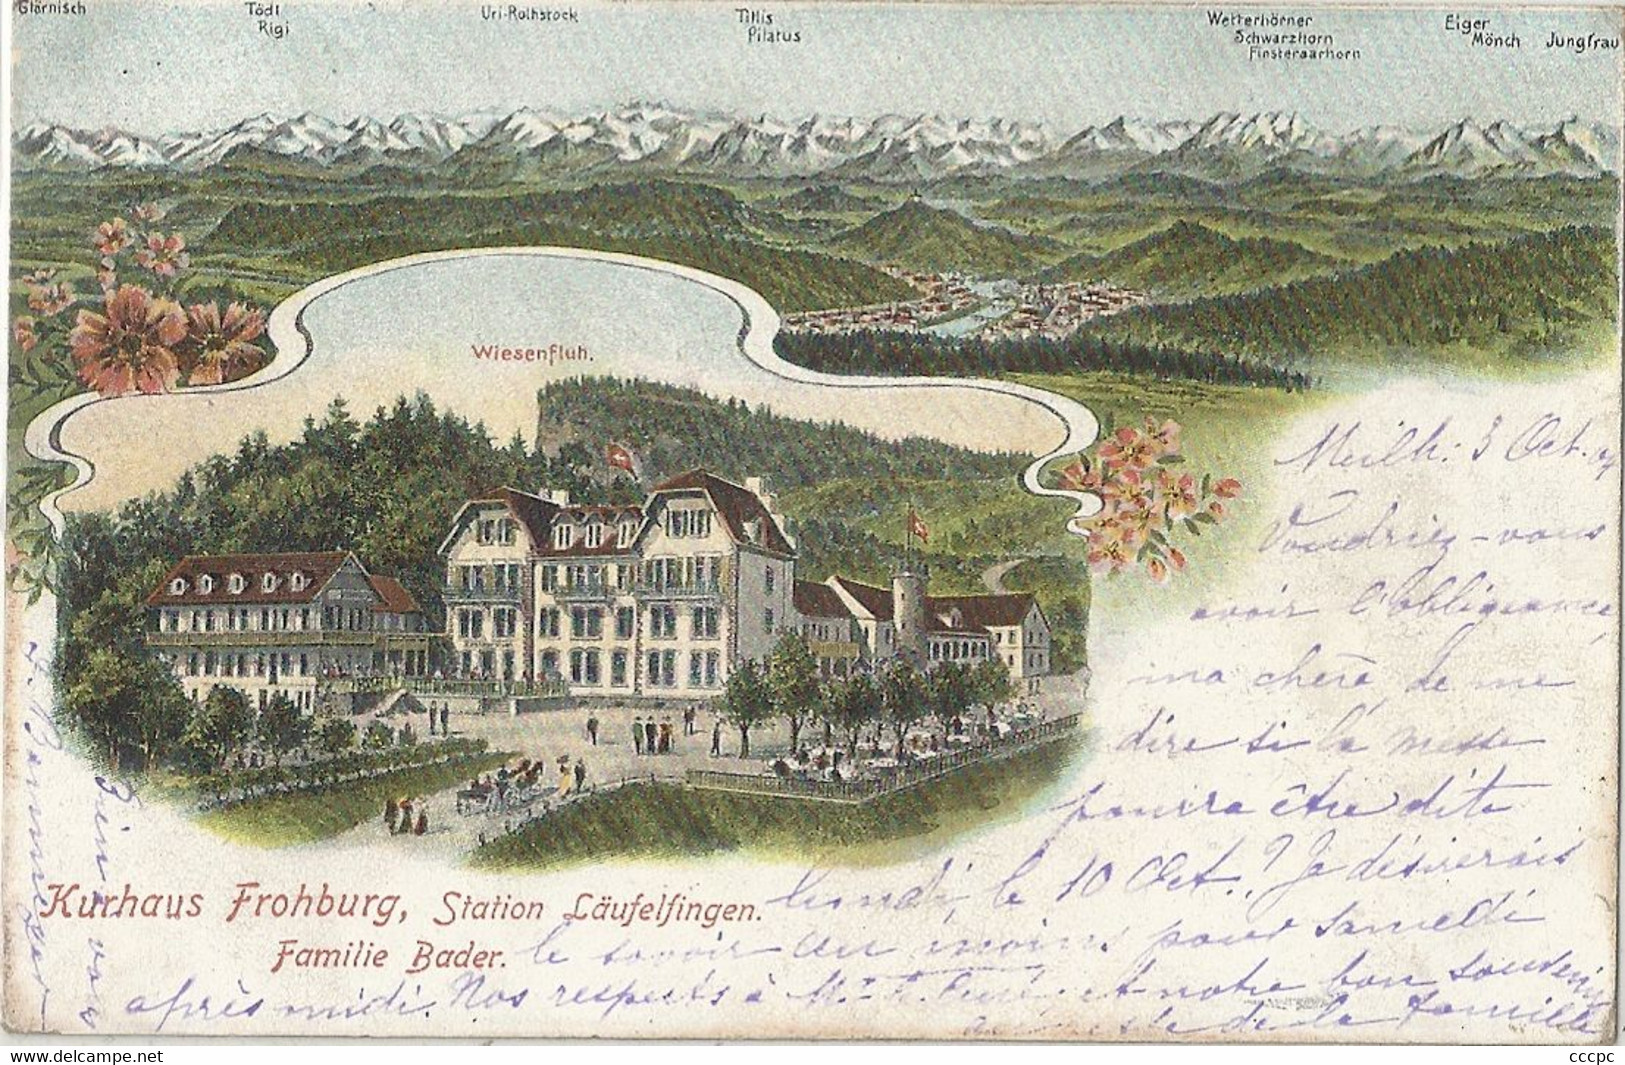 Glärnisch
Tödi
Rigi
Uri-Rothstock
Titlis
Pilatus
Wetterhörner
Schwarzhorn
Finsteraarhorn
Eiger
Mönch
Jungfrau
Wiesenfluh.
Kurhaus Frohburg, Station Läufelfingen.
Familie Bader.
3 Oct.
Voudriez-vous
avoir l'obligeance,
ma chère, de me
dire si la messe
pourra être dite
lundi, le 10 Oct.? Je désirerais
le savoir au moins pour samedi
après midi. Nos respects à Mr. le Curé et notre bon souvenir
de la famille
cccpc